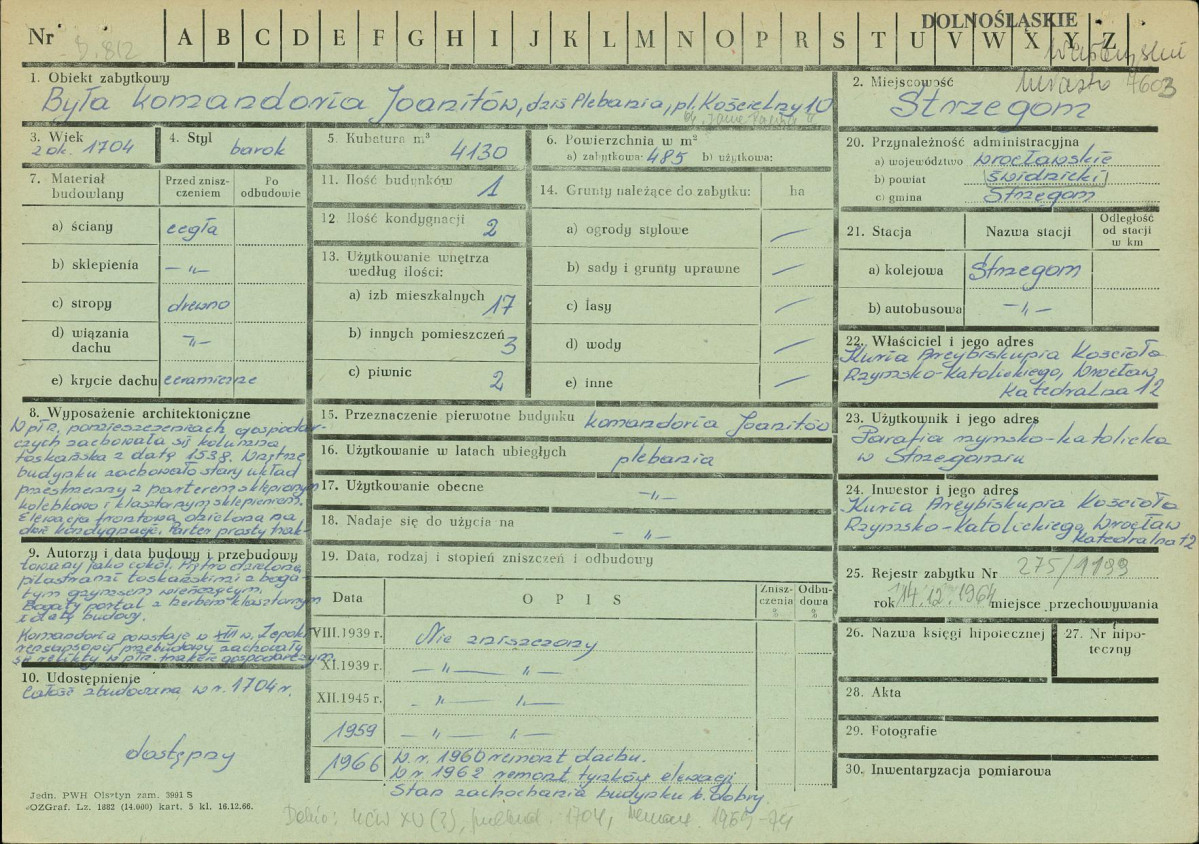 DOLNOŚLĄSKIE
Nr D.812 A B C D E F G H I J K L M N O P R S T U V W X Y Z
miasto 7603
1. Obiekt zabytkowy
Była komandoria Joanitów, dziś Plebania, pl. Kościelny 10
pl. Jana Pawła II
2. Miejscowość
Strzegom
3. Wiek
z ok. 1704
4. Styl
barok
5. Kubatura m³
4130
6. Powierzchnia w m²
a) zabytkowa: 485 b) użytkowa:
7. Materiał budowlany
Przed zniszczeniem
Po odbudowie
a) ściany cegła
b) sklepienia -„-
c) stropy drewno
d) wiązania dachu -„-
e) krycie dachu ceramiczne
8. Wyposażenie architektoniczne
W płr. pomieszczeniach gospodar-
czych zachowała się kolumna
toskańska z datą 1538. Wnętrze
budynku zachowało stary układ
przestrzenny z parterem sklepionym
kolebkowo i klasztornym sklepieniem.
Elewacja frontowa dzielona na
dwie kondygnacje. Parter prosty trak-
9. Autorzy i data budowy i przebudowy
towany jako cokół. Piętro dzielone
pilastrami toskańskimi z boga
tym gzymsem wieńczącym.
Bogaty portal z herbem klasztornym
i datą budowy.
Komandoria powstaje w XIII w. Z epoki
renesansowej przebudowy zachowały
się relikty w płn. trakcie gospodarczym
10. Udostępnienie
Całość zbudowana w r. 1704 r.
dostępny
11. Ilość budynków
1
12 Ilość kondygnacji
2
13. Użytkowanie wnętrza
według ilości:
a) izb mieszkalnych 17
b) innych pomieszczeń 3
c) piwnic 2
14. Grunty należące do zabytku: ha
a) ogrody stylowe —
b) sady i grunty uprawne —
c) lasy —
d) wody —
e) inne —
15. Przeznaczenie pierwotne budynku komandoria Joanitów
16. Użytkowanie w latach ubiegłych plebania
17. Użytkowanie obecne -„-
18. Nadaje się do użycia na -„-
19. Data, rodzaj i stopień zniszczeń i odbudowy
Data
O P I S
Zniszczenia %
Odbudowa %
VIII.1939 r. Nie zniszczony
XI.1939 r. -„- -„-
XII.1945 r. -„- -„-
1959 -„- -„-
1966 W r. 1960 remont dachu.
W r. 1962 remont tynków elewacji
Stan zachowania budynku b. dobry.
20. Przynależność administracyjna
a) województwo wrocławskie
b) powiat świdnicki
c) gmina Strzegom
21. Stacja
Nazwa stacji
Odległość od stacji w km
a) kolejowa Strzegom
b) autobusowa -„-
22. Właściciel i jego adres
Kuria Arcybiskupia Kościoła
Rzymsko-Katolickiego, Wrocław
Katedralna 12
23. Użytkownik i jego adres
Parafia rzymsko-katolicka
w Strzegomiu
24. Inwestor i jego adres
Kuria Arcybiskupia Kościoła
Rzymsko-Katolickiego, Wrocław
Katedralna 12
25. Rejestr zabytku Nr 275/1199
rok 14.12.1964 miejsce przechowywania
26. Nazwa księgi hipotecznej
27. Nr hipoteczny
28. Akta
29. Fotografie
30. Inwentaryzacja pomiarowa
Jedn. PWH Olsztyn zam. 3991 S
OZGraf. Lz. 1882 (14.000) kart. 5 kl. 16.12.66.
XV (?), 1704, remont. 1959-74